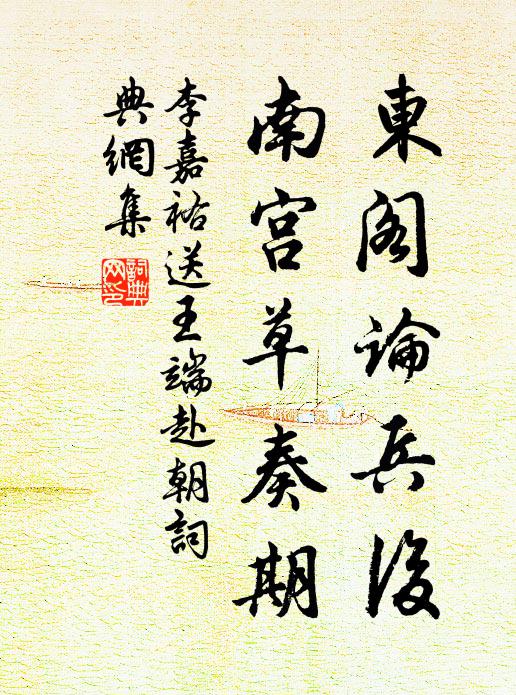 東阁論兵後
南宫草奏期
李嘉祐送王端赴朝詞
典網集
詞典网印